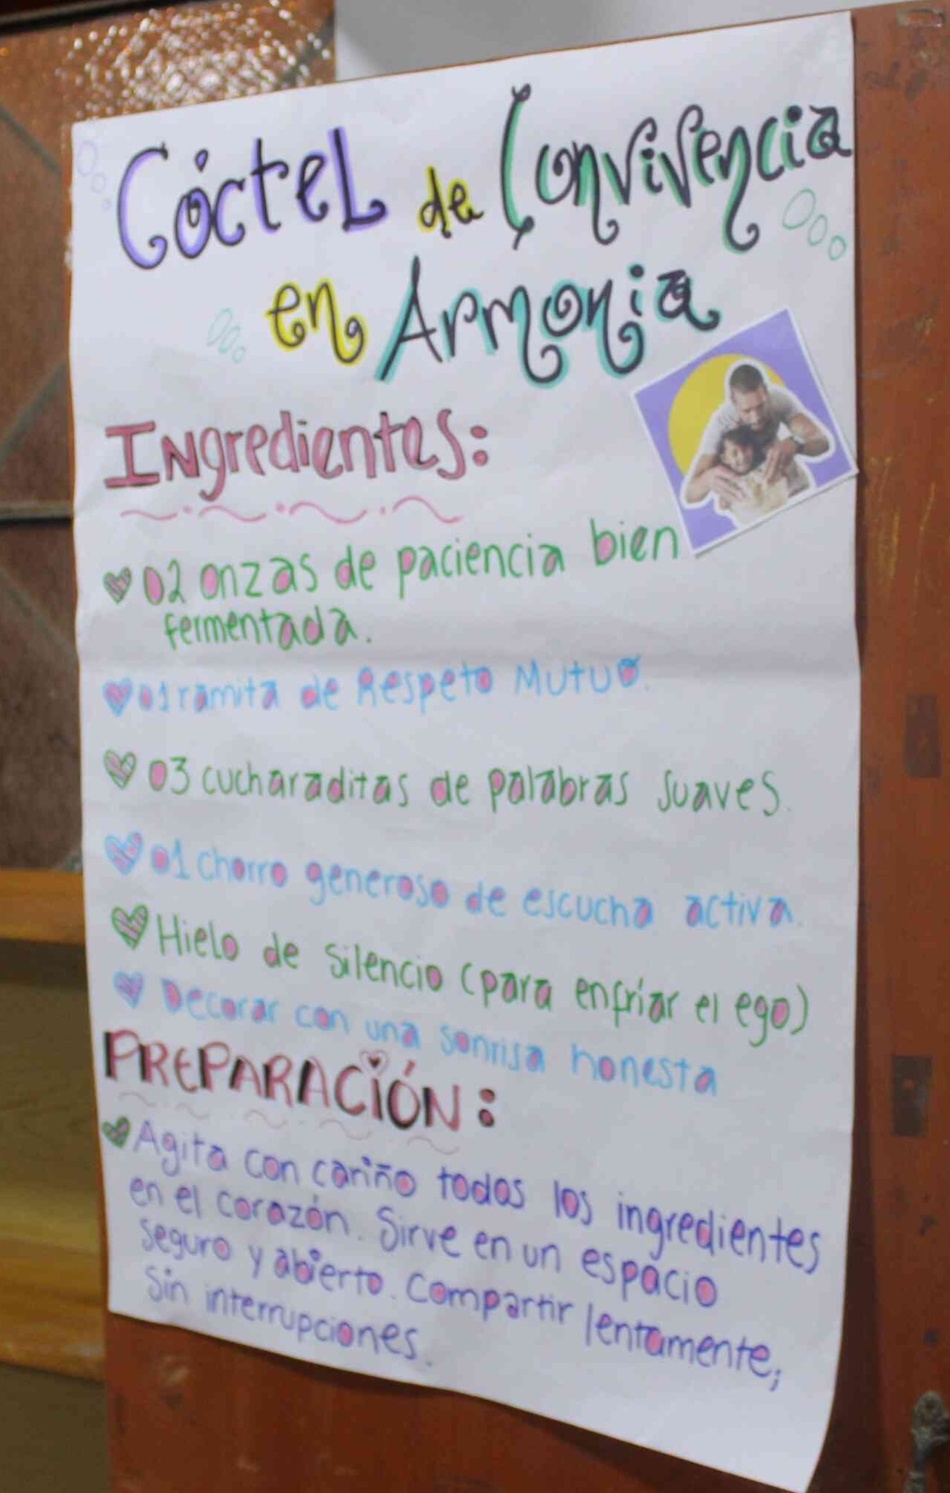 Cóctel de Convivencia
en Armonia
Ingredientes:
02 onzas de paciencia bien
fermentada.
01 ramita de Respeto Mutuo.
03 cucharaditas de palabras suaves.
01 chorro generoso de escucha activa.
Hielo de Silencio (para enfriar el ego)
Decorar con una sonrisa honesta
PREPARACIÓN:
Agita con cariño todos los ingredientes
en el corazón. Sirve en un espacio
seguro y abierto. Compartir lentamente,
sin interrupciones.